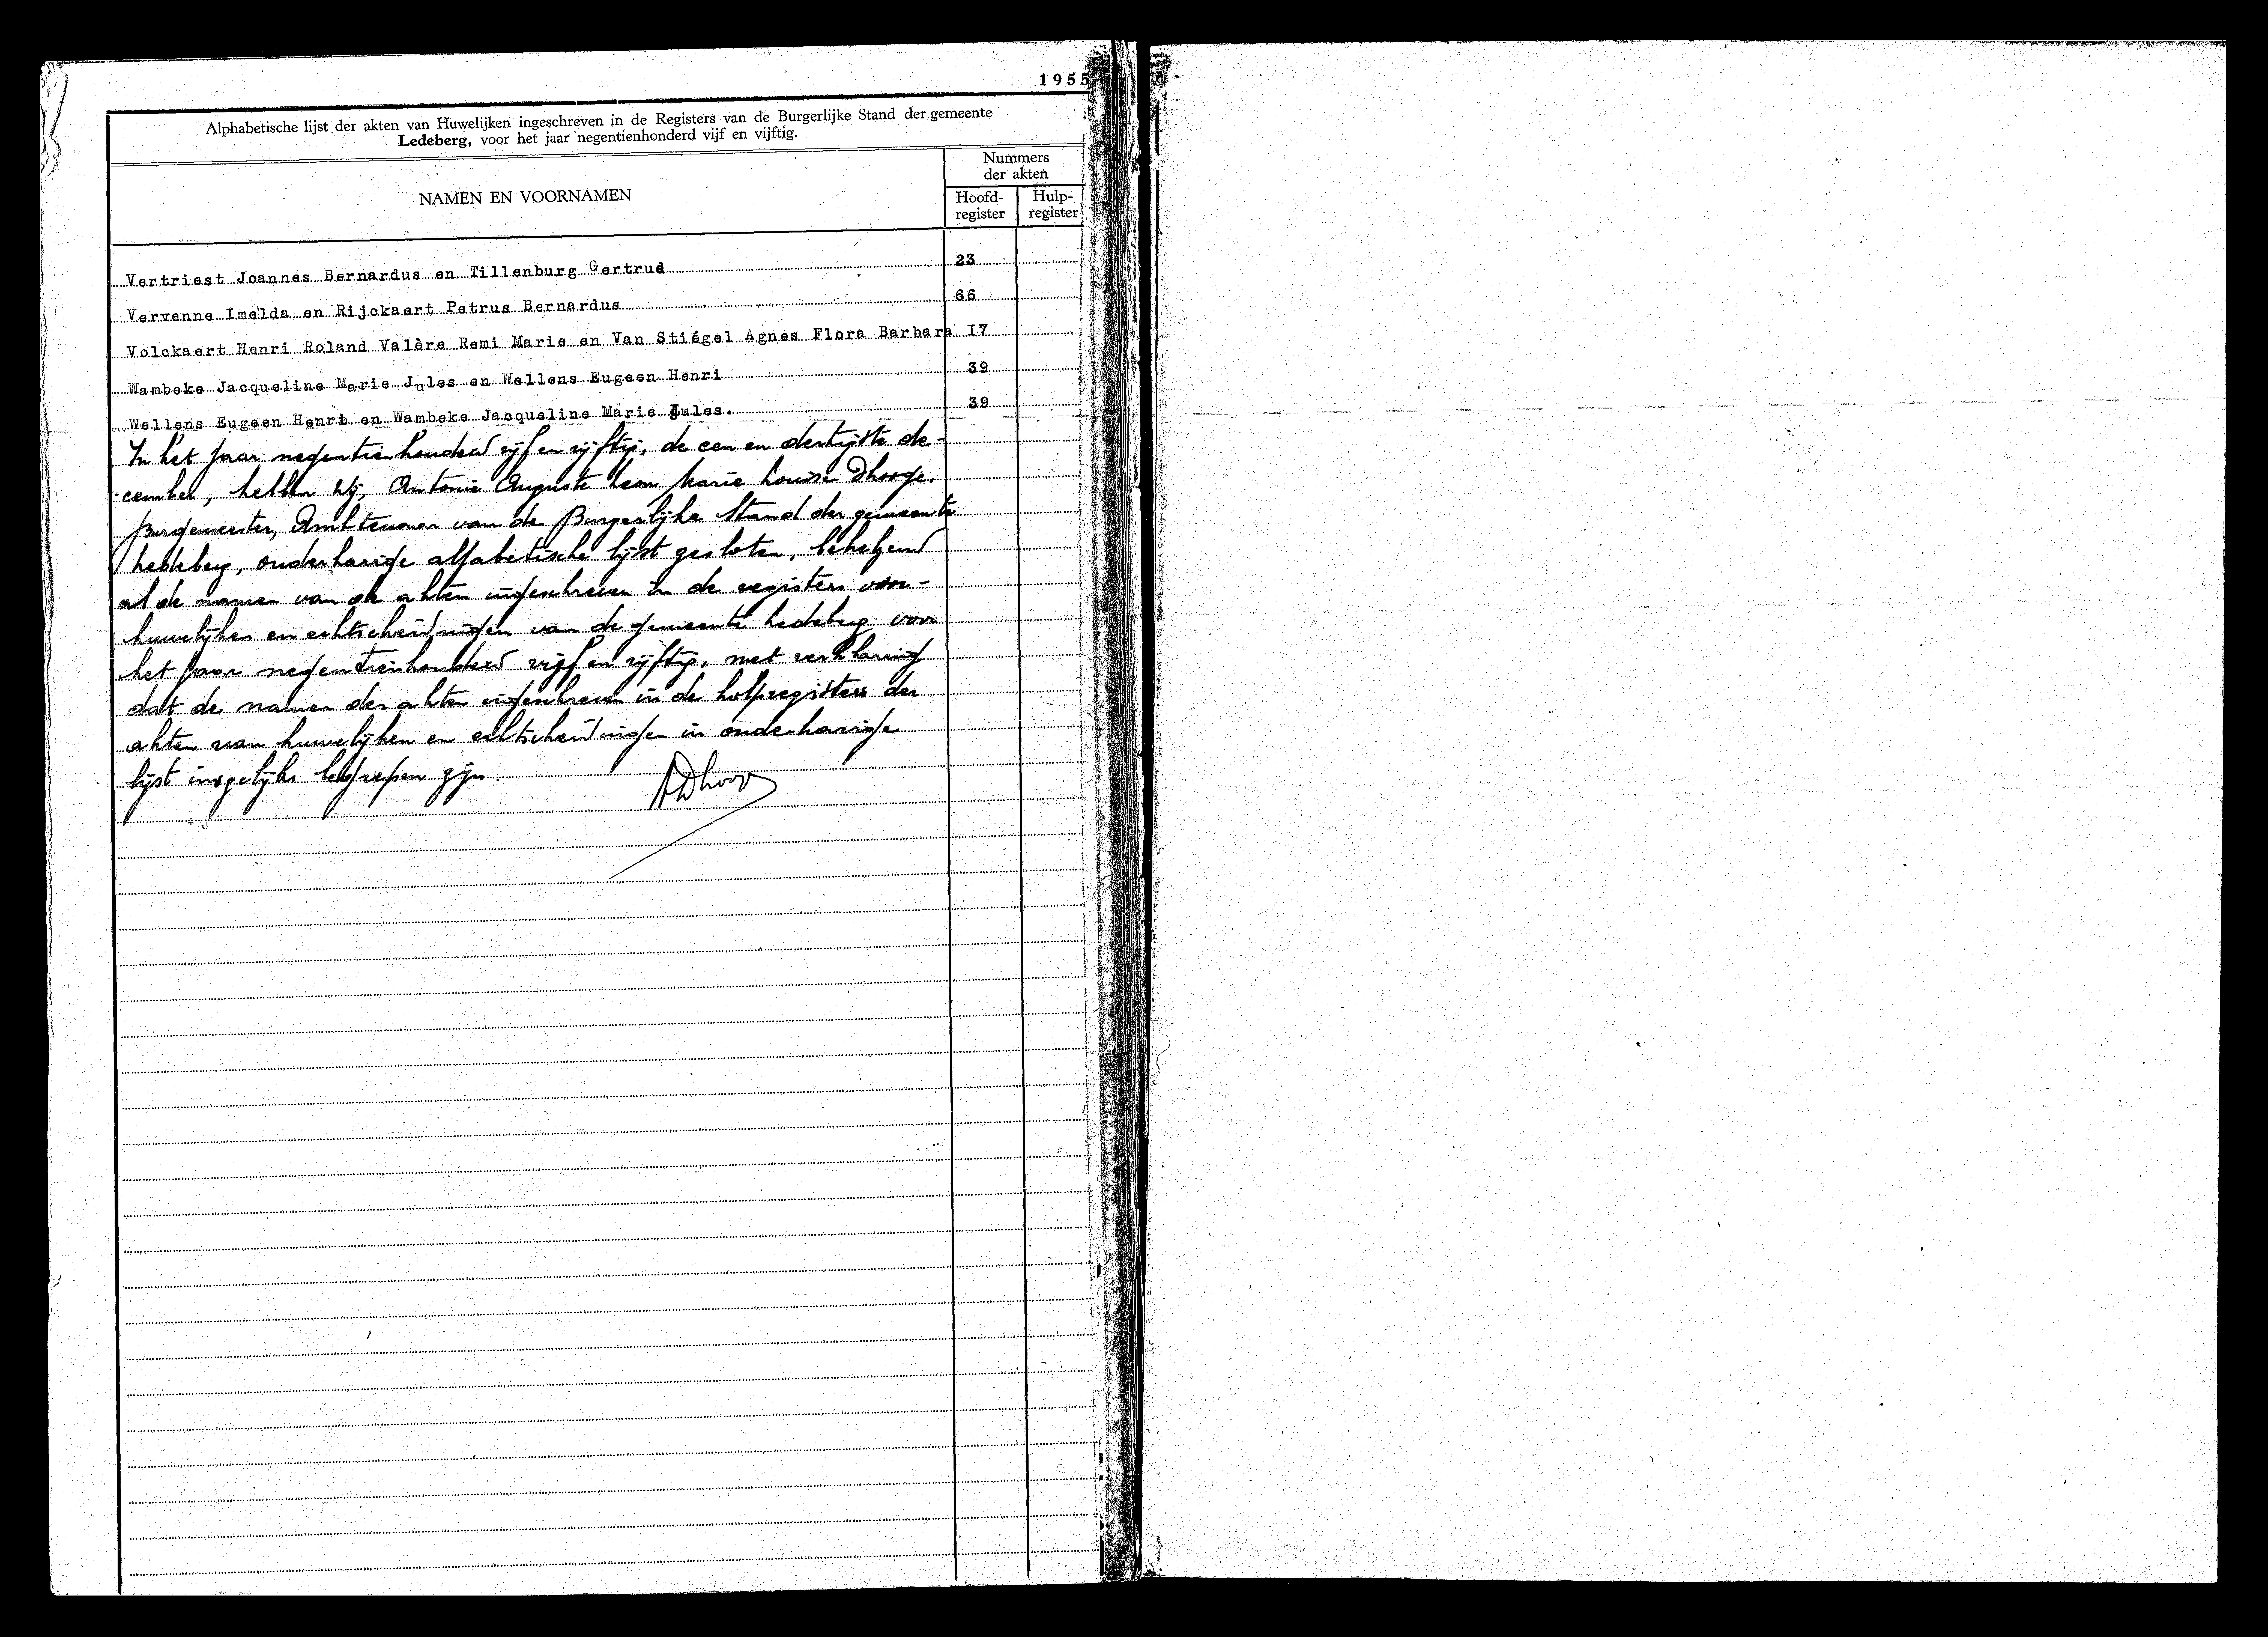 1955
Alphabetische lijst der akten van Huwelijken ingeschreven in de Registers van de Burgerlijke Stand der gemeente
Ledeberg, voor het jaar negentienhonderd vijf en vijftig.
NAMEN EN VOORNAMEN
Nummers
der akten
Hoofd-
register
Hulp-
register
Vertriest Joannes Bernardus en Tillenburg Gertrud 23
Vervenne Imelda en Rijckaert Petrus Bernardus 66
Volckaert Henri Roland Valère Remi Marie en Van Stiégel Agnes Flora Barbara I7
Wambeke Jacqueline Marie Jules en Wellens Eugeen Henri 39
Wellens Eugeen Henri en Wambeke Jacqueline Marie Jules. 39
In het jaar negentienhonderd vijf en vijftig, de een en dertigste de-
cember, hebben wij, Antoine Auguste Leon Marie Louise Dhooge,
Burgemeester, Ambtenaar van de Burgerlijke Stand der gemeente
Ledeberg, onderhavige alfabetische lijst gesloten, behelzend
al de namen van de akten ingeschreven in de registers van
huwelijken en echtscheidingen van de gemeente Ledeberg voor
het jaar negentienhonderd vijf en vijftig, met verklaring
dat de namen der akten ingeschreven in de hulpregisters der
akten van huwelijken en echtscheidingen in onderhavige
lijst insgelijks begrepen zijn.
ADhooge